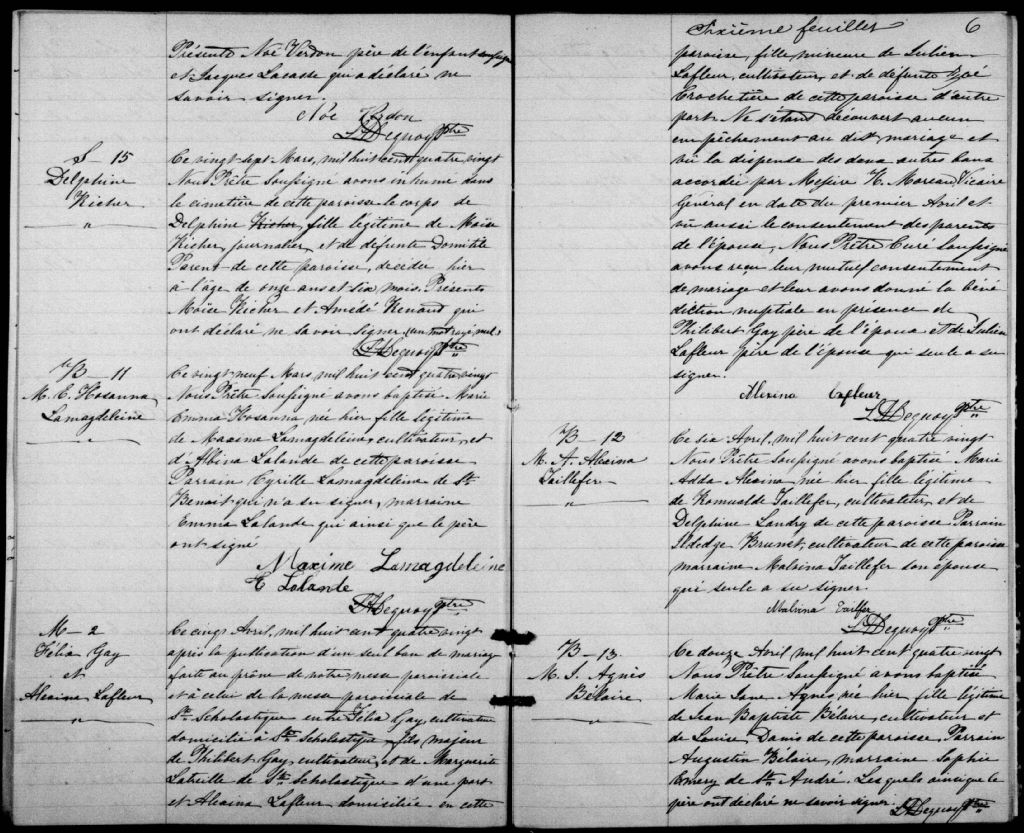 Présents Noë Verdon père de l'enfant soussigné
et Jacques Lacasse qui a déclaré ne
savoir signer.
Noë Verdon
Dequoy Ptre
S — 15
Delphine
Richer
"
Ce vingt sept Mars, mil huit cent quatre vingt
Nous Prêtre Soussigné avons inhumé dans
le cimetière de cette paroisse le corps de
Delphine Richer, fille légitime de Moïse
Richer, journalier, et de defunte Domitile
Parent de cette paroisse, decédée hier
à l'âge de onze ans et six mois. Présents
Moïse Richer et Amédé Renaud qui
ont déclaré ne savoir signer (un mot rayé nul
Dequoy Ptre
B — 11
M. E. Hosanna
Lamagdeleine
"
Ce vingt neuf Mars, mil huit cent quatre vingt
Nous Prêtre Soussigné avons baptisé Marie
Emma Hosanna, née hier fille légitime
de Maxime Lamagdeleine, cultivateur, et
d'Albina Lalande de cette paroisse
Parrain Cyrille Lamagdeleine de St
Benoit qui n'a su signer, marraine
Emma Lalande qui ainsi que le père
ont signé
Maxime Lamagdeleine
E Lalande
Dequoy Ptre
M — 2
Félix Gay
et
Alexina Lafleur
"
Ce cinq Avril, mil huit cent quatre vingt
après la publication d'un seul ban de mariage
faite au prône de notre messe paroissiale
et à celui de la messe paroissiale de
Ste Scholastique entre Félix Gay, cultivateur
domicilié à Ste Scholastique fils majeur
de Philibert Gay, cultivateur, et de Marguerite
Latreille de Ste Scholastique d'une part
et Alexina Lafleur domiciliée en cette
Sixième feuillet 6
paroisse, fille mineure de Julien
Lafleur, cultivateur, et de défunte Zoé
Crochetière de cette paroisse d'autre
part. Ne s'étant découvert aucun
empêchement au dit mariage et
vu la dispense des deux autres bans
accordée par Messire H. Moreau, Vicaire
Général en date du premier Avril et
vu aussi le consentement des parents
de l'épouse, Nous Prêtre Curé Soussigné
avons reçu leur mutuel consentement
de mariage et leur avons donné la béné
diction nuptiale en présence de
Philibert Gay père de l'époux et de Julien
Lafleur père de l'épouse qui seule a su
signer.
Alexina Lafleur
Dequoy Ptre
B — 12
M. A. Alexina
Taillefer
"
Ce six Avril, mil huit cent quatre vingt
Nous Prêtre Soussigné avons baptisé Marie
Adda Alexina née hier fille légitime
de Romuald Taillefer, cultivateur, et de
Delphine Landry de cette paroisse Parrain
Brunet, cultivateur de cette paroisse
marraine Malvina Taillefer son épouse
qui seule a su signer.
Malvina Tailfer
Dequoy Ptre
B — 13
M. J. Agnès
Bélaire
Ce douze Avril mil huit cent quatre vingt
Nous Prêtre Soussigné avons baptisé
Marie Jane Agnès née hier, fille légitime
de Jean Baptiste Bélaire, cultivateur et
de Louise Danis de cette paroisse Parrain
Augustin Bélaire, marraine Sophie
Emery de St André. Lesquels ainsi que le
père ont déclaré ne savoir signer. Dequoy Ptre